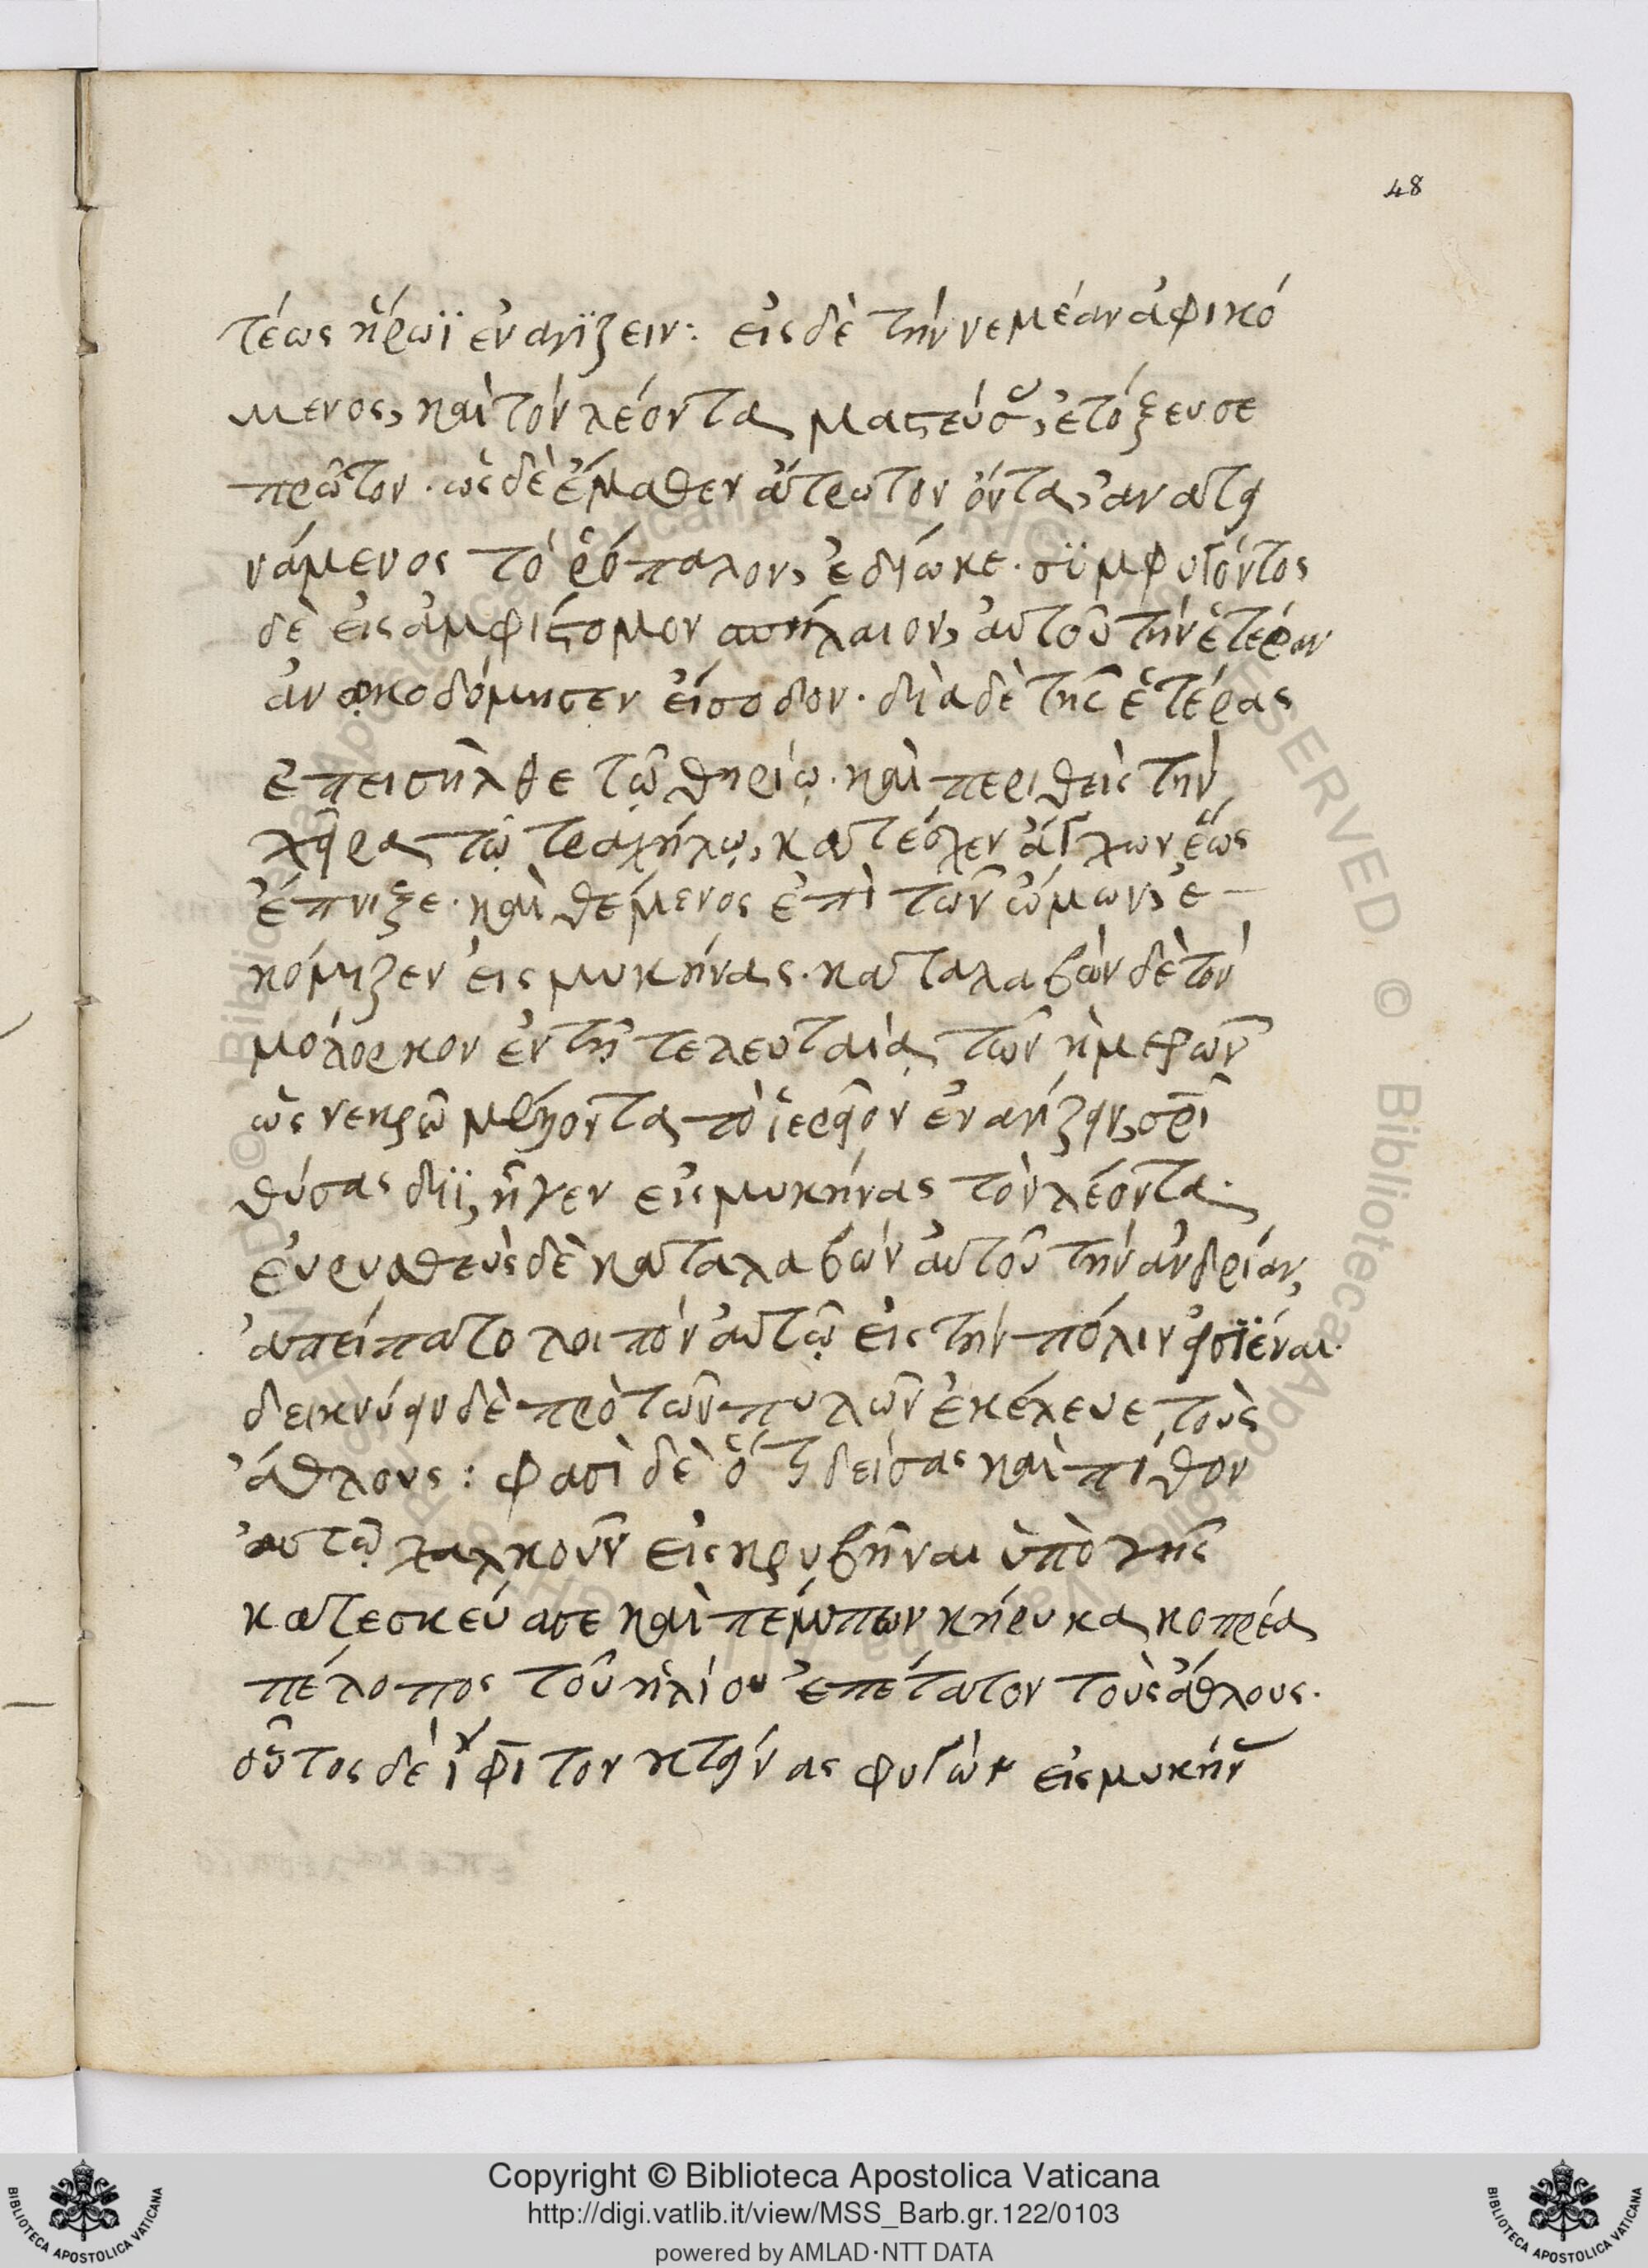 48
τέως ἥρωϊ ἐναγίζειν: εἰς δὲ τὴν νεμέαν ἀφικό
μενος, καὶ τὸν λέοντα μαστεύσας, ἐτόξευσε
πρῶτον. ὡς δὲ ἔμαθεν ἄτρωτον ὄντα, ἀνατει
νάμενος τὸ ῥόπαλον, ἐδίωκε. συμφυγόντος
δὲ εἰς ἀμφίστομον σπήλαιον, αὐτοῦ τὴν ἑτέραν
ἀνῳκοδόμησεν εἴσοδον. διὰ δὲ τῆς ἑτέρας
ἐπεισῆλθε τῷ θηρίῳ. καὶ περιθεὶς τὴν
χεῖρα τῷ τραχήλῳ, κατέσχεν ἄγχων ἕως
ἔπνιξε. καὶ θέμενος ἐπὶ τῶν ὤμων, ἐ
κόμιζεν εἰς μυκήνας. καταλαβὼν δὲ τὸν
μόλορκον ἐν τῇ τελευταίᾳ τῶν ἡμερῶν
ὡς νεκρῷ μέλλοντα τὸ ἱερεῖον ἐναγίζειν, σωτῆρι
θύσας διῒ, ἦγεν εἰς μυκήνας τὸν λέοντα.
εὐρυσθεὺς δὲ καταλαβὼν αὐτοῦ τὴν ἀνδρίαν,
ἀπείπατο λοιπὸν αὐτῷ εἰς τὴν πόλιν εἰσϊέναι.
δεικνύειν δὲ πρὸ τῶν πυλῶν ἐκέλευε τοὺς
ἄθλους: φασὶ δὲ ὅτι δείσας καὶ πίθον
αὐτῷ χαλκοῦν εἰσκρυβῆναι ὑπὸ γῆς
κατεσκεύασε καὶ πέμπων κήρυκα κοπρέα
πέλοπος τοῦ ἠλίου ἐπέτατον τοὺς ἄθλους.
οὗτος δὲ ἴφιτον κτείνας φυγὼν εἰς μυκήν
Copyright © Biblioteca Apostolica Vaticana
http://digi.vatlib.it/view/MSS_Barb.gr.122/0103
powered by AMLAD·NTT DATA
BIBLIOTECA APOSTOLICA VATICANA
BIBLIOTECA APOSTOLICA VATICANA